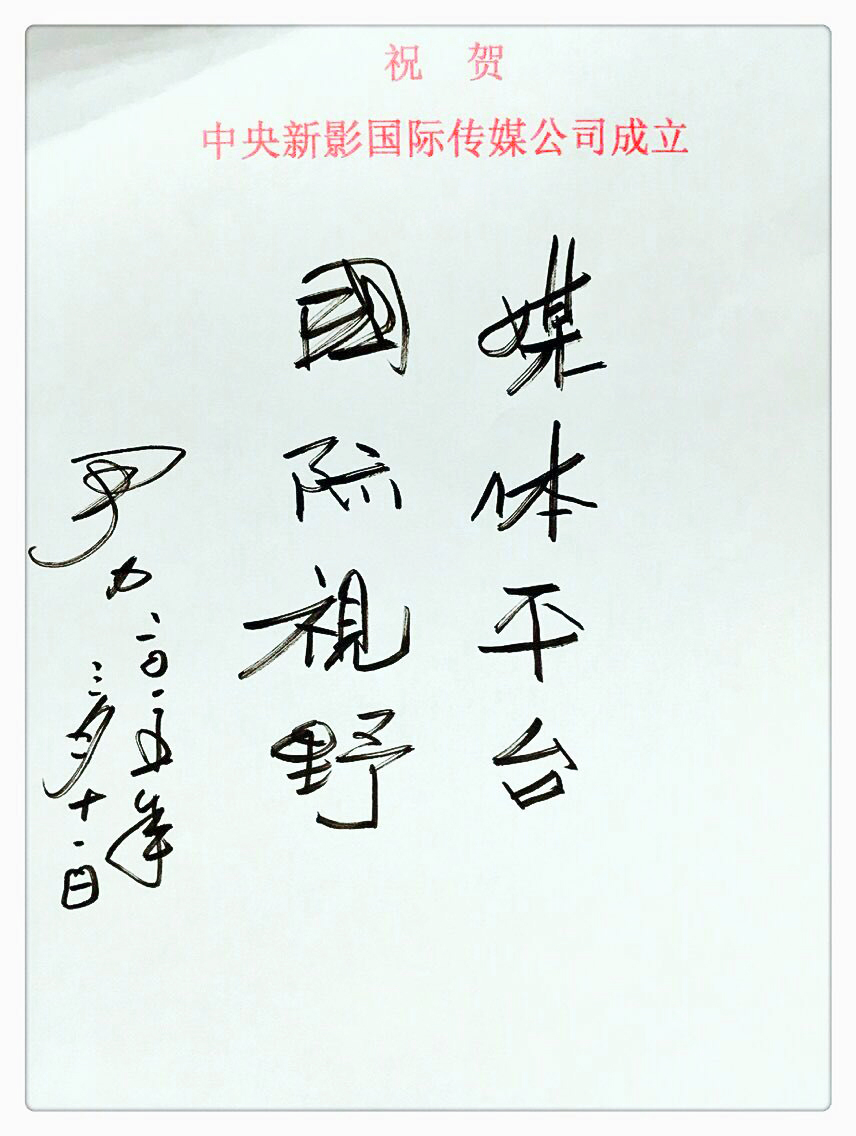 祝 贺
中央新影国际传媒公司成立
媒体平台
國际視野
尹力 二〇一五年
三月十一日